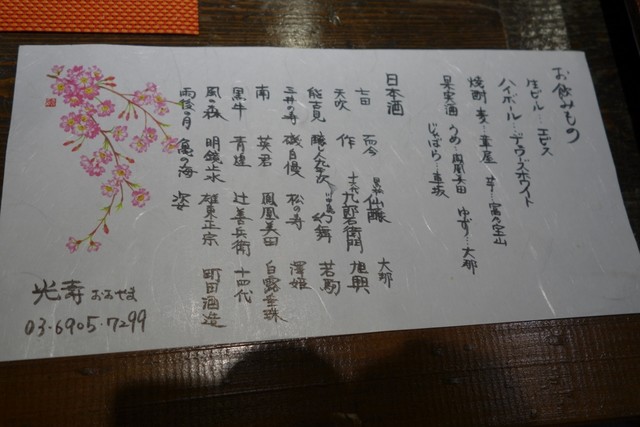 お飲みもの
生ビール…エビス
ハイボール…デュワーズホワイト
焼酎 麦…華屋 芋…富乃宝山
果実酒 うめ…鳳凰美田 ゆず…大那
じゃばら…車坂
日本酒
七田 而今 仙醸 大那
矢吹 作 十六代九郎右衛門 旭興
能古見 醸し人九平次 幻舞 若駒
三井の寿 磯自慢 松の寿 澤姫
南 英君 鳳凰美田 白露垂珠
黒牛 青煌 辻善兵衛 十四代
風の森 明鏡止水 雄東正宗 町田酒造
雨後の月 亀の海 姿
光寿 おおやま
03-6905-7299